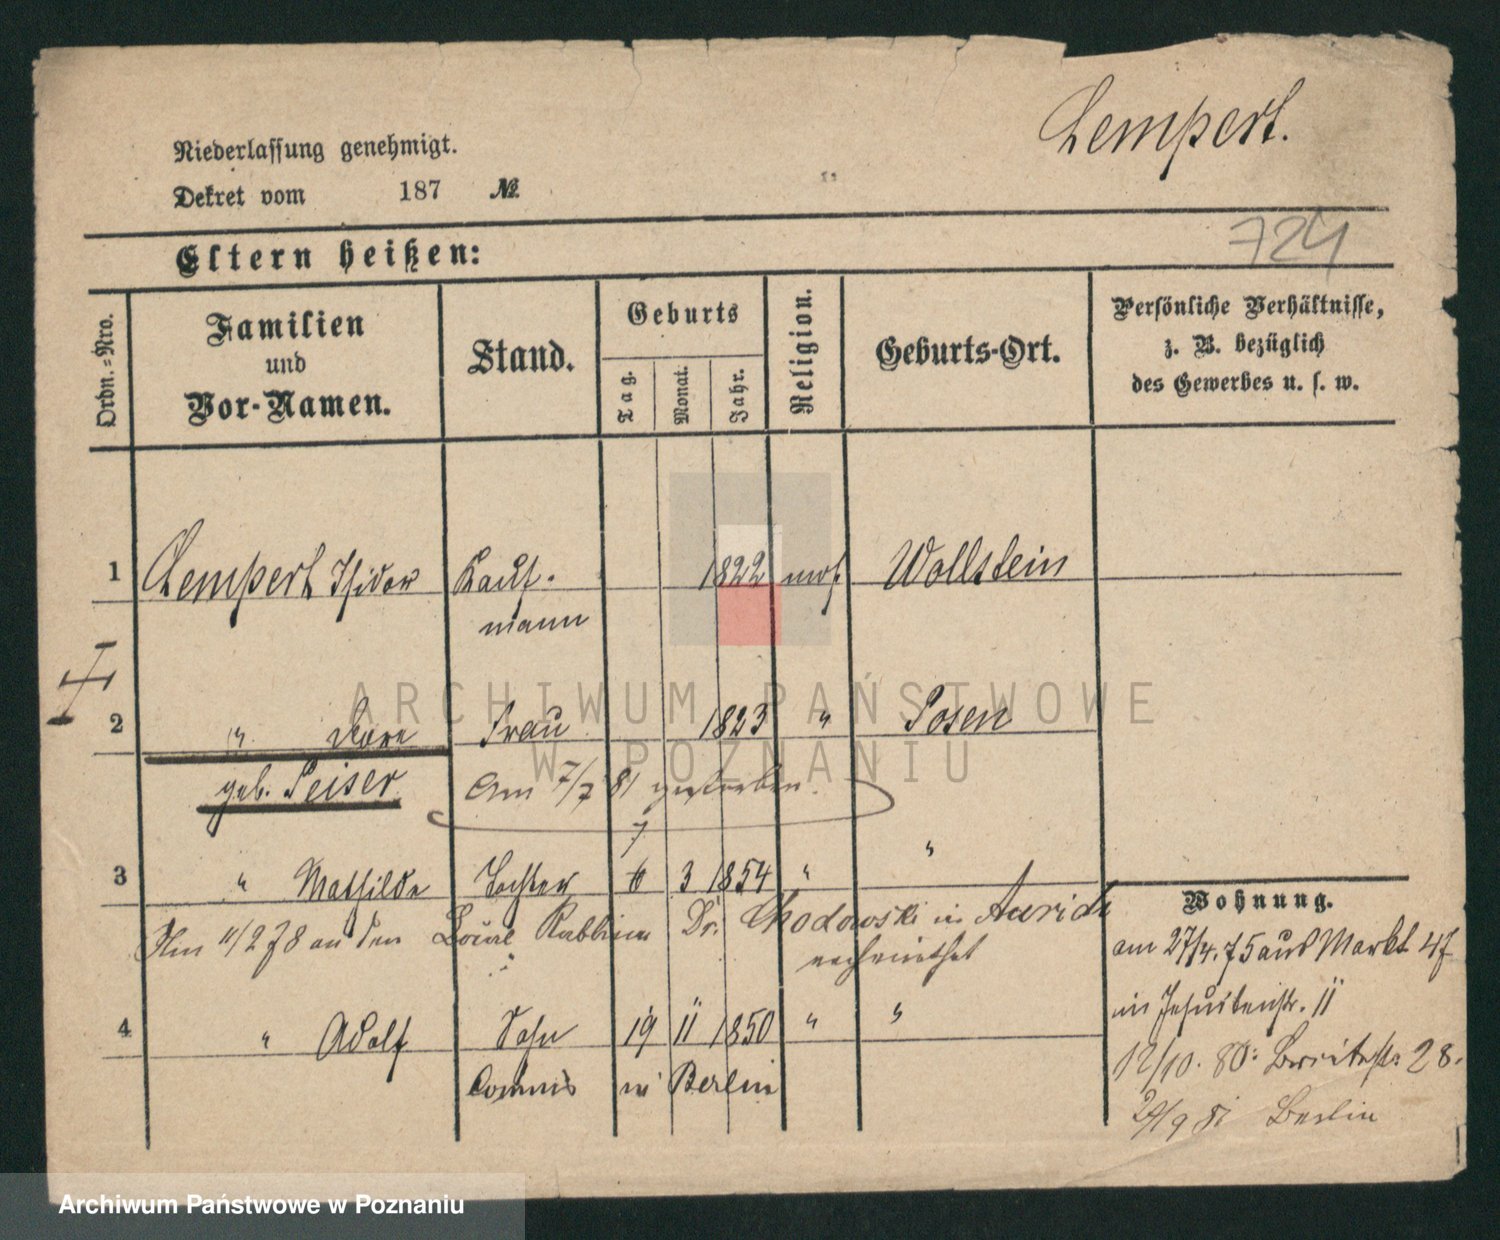 Lempert.
Niederlassung genehmigt.
Dekret vom 187 №
724
Eltern heißen:
Ordn.=Nro.
Familien
und
Vor-Namen.
Stand.
Geburts
Tag.
Monat.
Jahr.
Religion.
Geburts-Ort.
Persönliche Verhältnisse,
z. B. bezüglich
des Gewerbes u. s. w.
1 Lempert Isidor Kauf- 1822 mos. Wollstein
mann
2 " Dore Frau 1823 " Posen
geb. Peiser Am 7/7 81 gestorben.
7
3 " Mathilde Tochter 6 3 1854 " "
Am 11/2 78 an den Rabbiner Dr. Chodowski in Aurich
verheirathet
4 " Adolf Sohn 19 11 1850 " "
Commis in Berlin
Wohnung.
am 27/4. 75 aus Markt 47
in Jesuitenstr. 11
12/10. 80: Breitestr. 28.
29/9 81 Berlin
ARCHIWUM PAŃSTWOWE
W POZNANIU
Archiwum Państwowe w Poznaniu